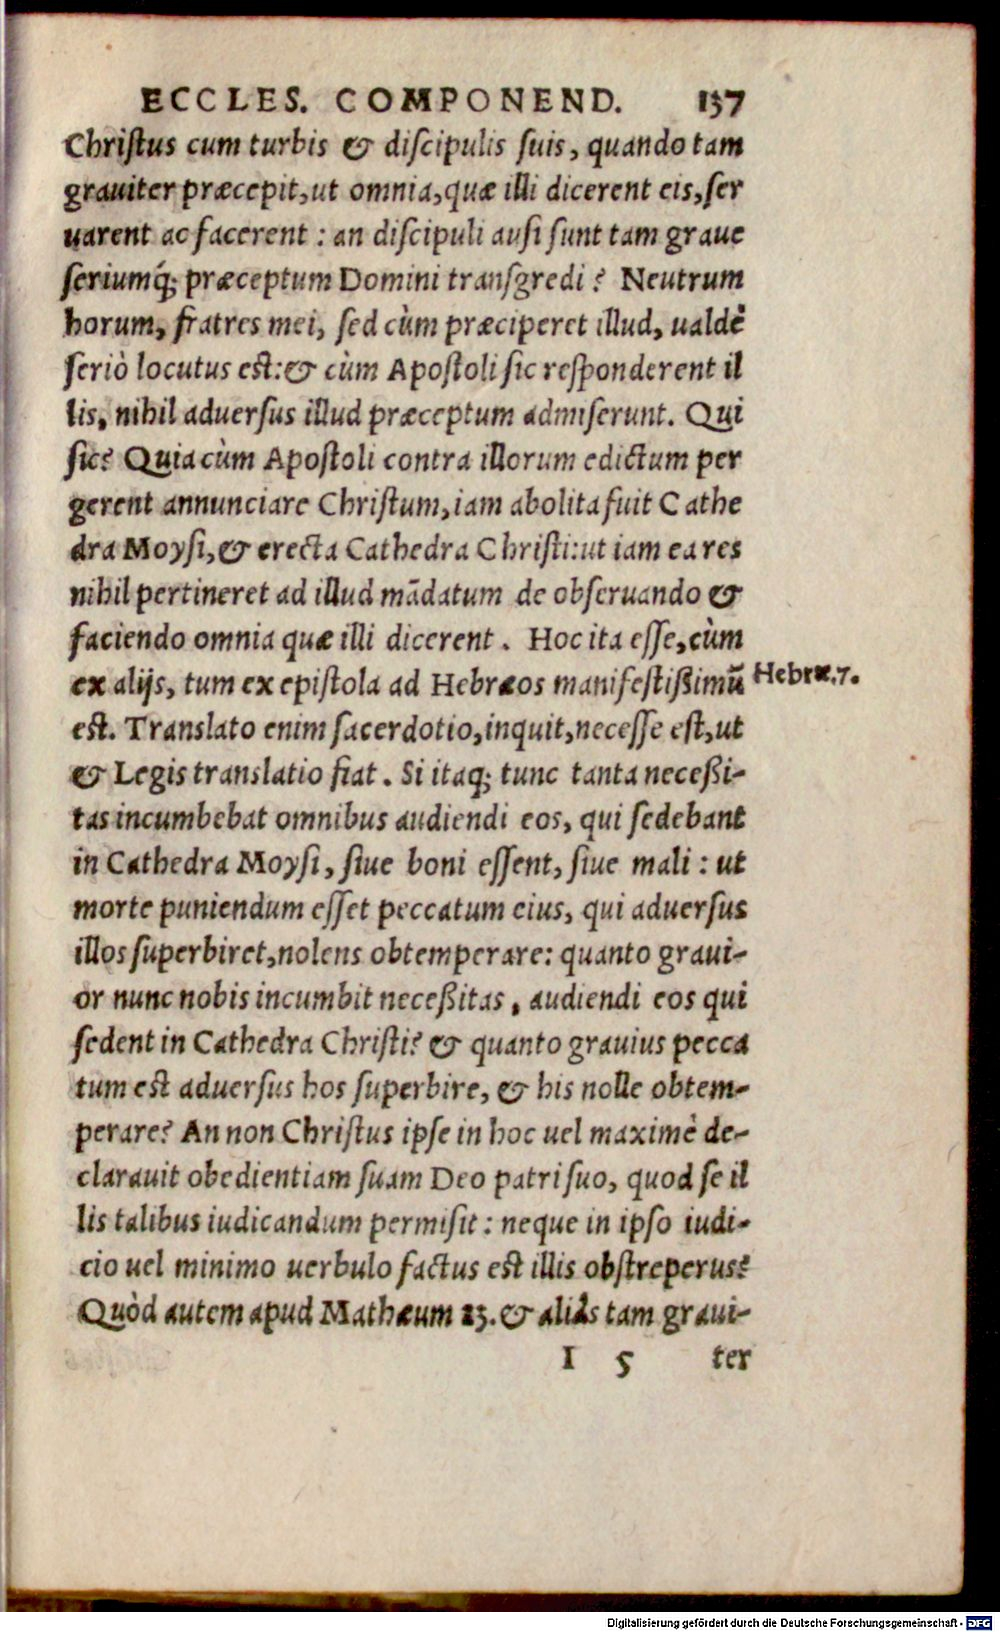 ECCLES. COMPONEND. 137
Christus cum turbis & discipulis suis, quando tam
grauiter præcepit, ut omnia, quæ illi dicerent eis, ser
uarent ac facerent : an discipuli ausi sunt tam graue
seriumq́; præceptum Domini transgredi? Neutrum
horum, fratres mei, sed cùm præciperet illud, ualdè
seriò locutus est: & cùm Apostoli sic responderent il
lis, nihil aduersus illud præceptum admiserunt. Qui
sic? Quia cùm Apostoli contra illorum edictum per
gerent annunciare Christum, iam abolita fuit Cathe
dra Moysi, & erecta Cathedra Christi: ut iam ea res
nihil pertineret ad illud mãdatum de obseruando &
faciendo omnia quæ illi dicerent. Hoc ita esse, cùm
ex alijs, tum ex epistola ad Hebræos manifestißimũ
Hebræ. 7.
est. Translato enim sacerdotio, inquit, necesse est, ut
& Legis translatio fiat. Si itaq; tunc tanta neceßi-
tas incumbebat omnibus audiendi eos, qui sedebant
in Cathedra Moysi, siue boni essent, siue mali : ut
morte puniendum esset peccatum eius, qui aduersus
illos superbiret, nolens obtemperare: quanto graui-
or nunc nobis incumbit neceßitas, audiendi eos qui
sedent in Cathedra Christi? & quanto grauius pecca
tum est aduersus hos superbire, & his nolle obtem-
perare? An non Christus ipse in hoc uel maximè de-
clarauit obedientiam suam Deo patri suo, quod se il
lis talibus iudicandum permisit : neque in ipso iudi-
cio uel minimo uerbulo factus est illis obstreperus?
Quòd autem apud Mathæum 23. & aliàs tam graui-
I 5 ter
Digitalisierung gefördert durch die Deutsche Forschungsgemeinschaft - DFG